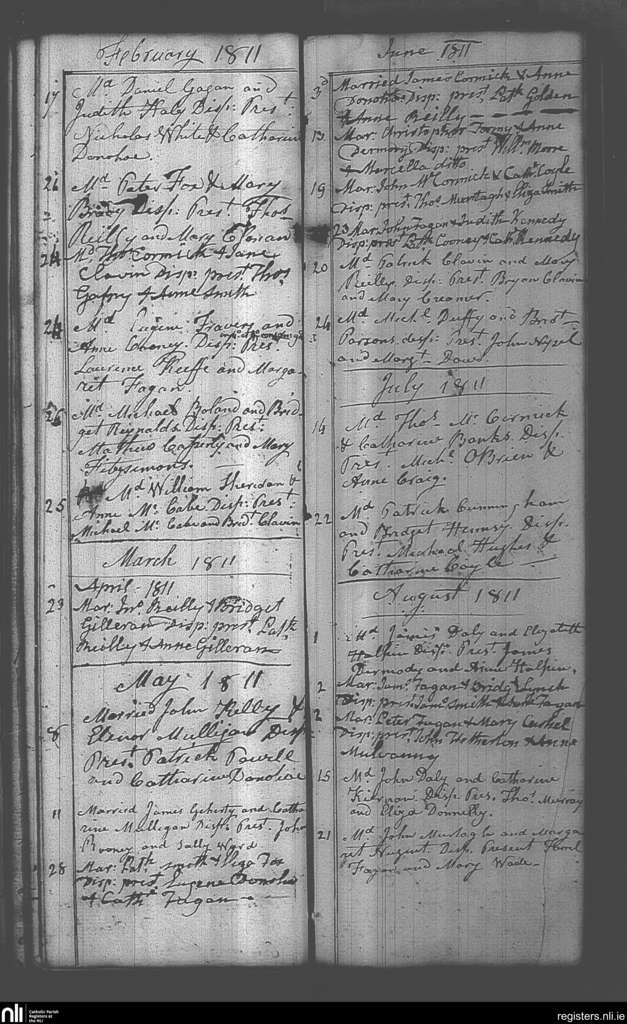 February 1811
17 Md Daniel Gagan and
Judith Haly Disp: Prest
Nicholas White & Catharine
Donohoe.
21 Md Peter Fox & Mary
Brady Disp: Prest. Thos
Reilly and Mary
24 Md Thos Cormick & Jane
Clavin Disp: prest Thos
Gafny & Anne Smith
24 Md Eugine and
Anne Cooney Disp: Prest.
Laurence Keeffe and Marga-
ret Fagan.
26 Md Michael Boland and Brid
get Reynolds Disp: Prest.
Mathew Cassedy and Mary
Fitzsimons.
25 Md William Sheridan &
Anne Mc Cabe Disp: Prest.
Michael Mc Cabe and Bridt. Clavin
March 1811
April 1811
23 Mar. Jno. Reilly & Bridget
Gilleran Disp: prest. Patk
Reilly & Anne Gilleran
May 1811
8 Married John Kelly &
Elenor Mulligan Disp:
Prest. Patrick Powell
and Catharine Donohoe
11 Married James and Catha
rine Mulligan Disp: Prest. John
Rooney and Sally Ward
28 Mar. Patk. Smith & Eliza Fox
Disp: prest. Eugene Donohoe
& Cathe. Fagan
June 1811
3d Married James Cormick & Anne
Donohoe Disp: prest. Golden
& Anne Reilly
13 Mar. Christopher Tormy & Anne
Dermody Disp: prest Willm. Moore
& Marcella ditto
19 Mar. John McCormick & Cath. Coyle
Disp: prest. Thos Murtagh & Eliza Smith
23 Mar. John Fagan & Judith Kennedy
Disp: prest. Patk Cooney & Cath. Kennedy
20 Md Patrick Clavin and Mary
Reilly Disp: Prest. Bryan Clavin
and Mary Creamer.
24 Md Michl. Duffy and Bridt.
Parsons disp: Prest. John
and Margt.
July 1811
14 Md Thos. Mc. Cormick
& Catharine Banks. Disp.
Pres. Michl. OBrien &
Anne Craig.
22 Md Patrick Cunningham
and Bridget Disp.
Pres. Michael Hughes &
Catharine Coyle
August 1811
1 Md James Daly and Elizabeth
Halpin Disp: Prest. James
Dermody and Anne Halpin.
2 Mar. James Fagan & Bridgt. Lynch
Disp. prest. James Smith & Fagan
2 Mar. Peter Fagan & Mary
Disp: prest. John Hetherton & Anne
Mulvanny
15 Md John Daly and Catharine
Kiernan. Disp. Pres. Thos. Murray
and Eliza Donnelly.
21 Md John Murtagh and Marga
ret Nugent Disp. Present
Fagan and Mary Wade
nli
Catholic Parish
Registers at
the NLI
registers.nli.ie